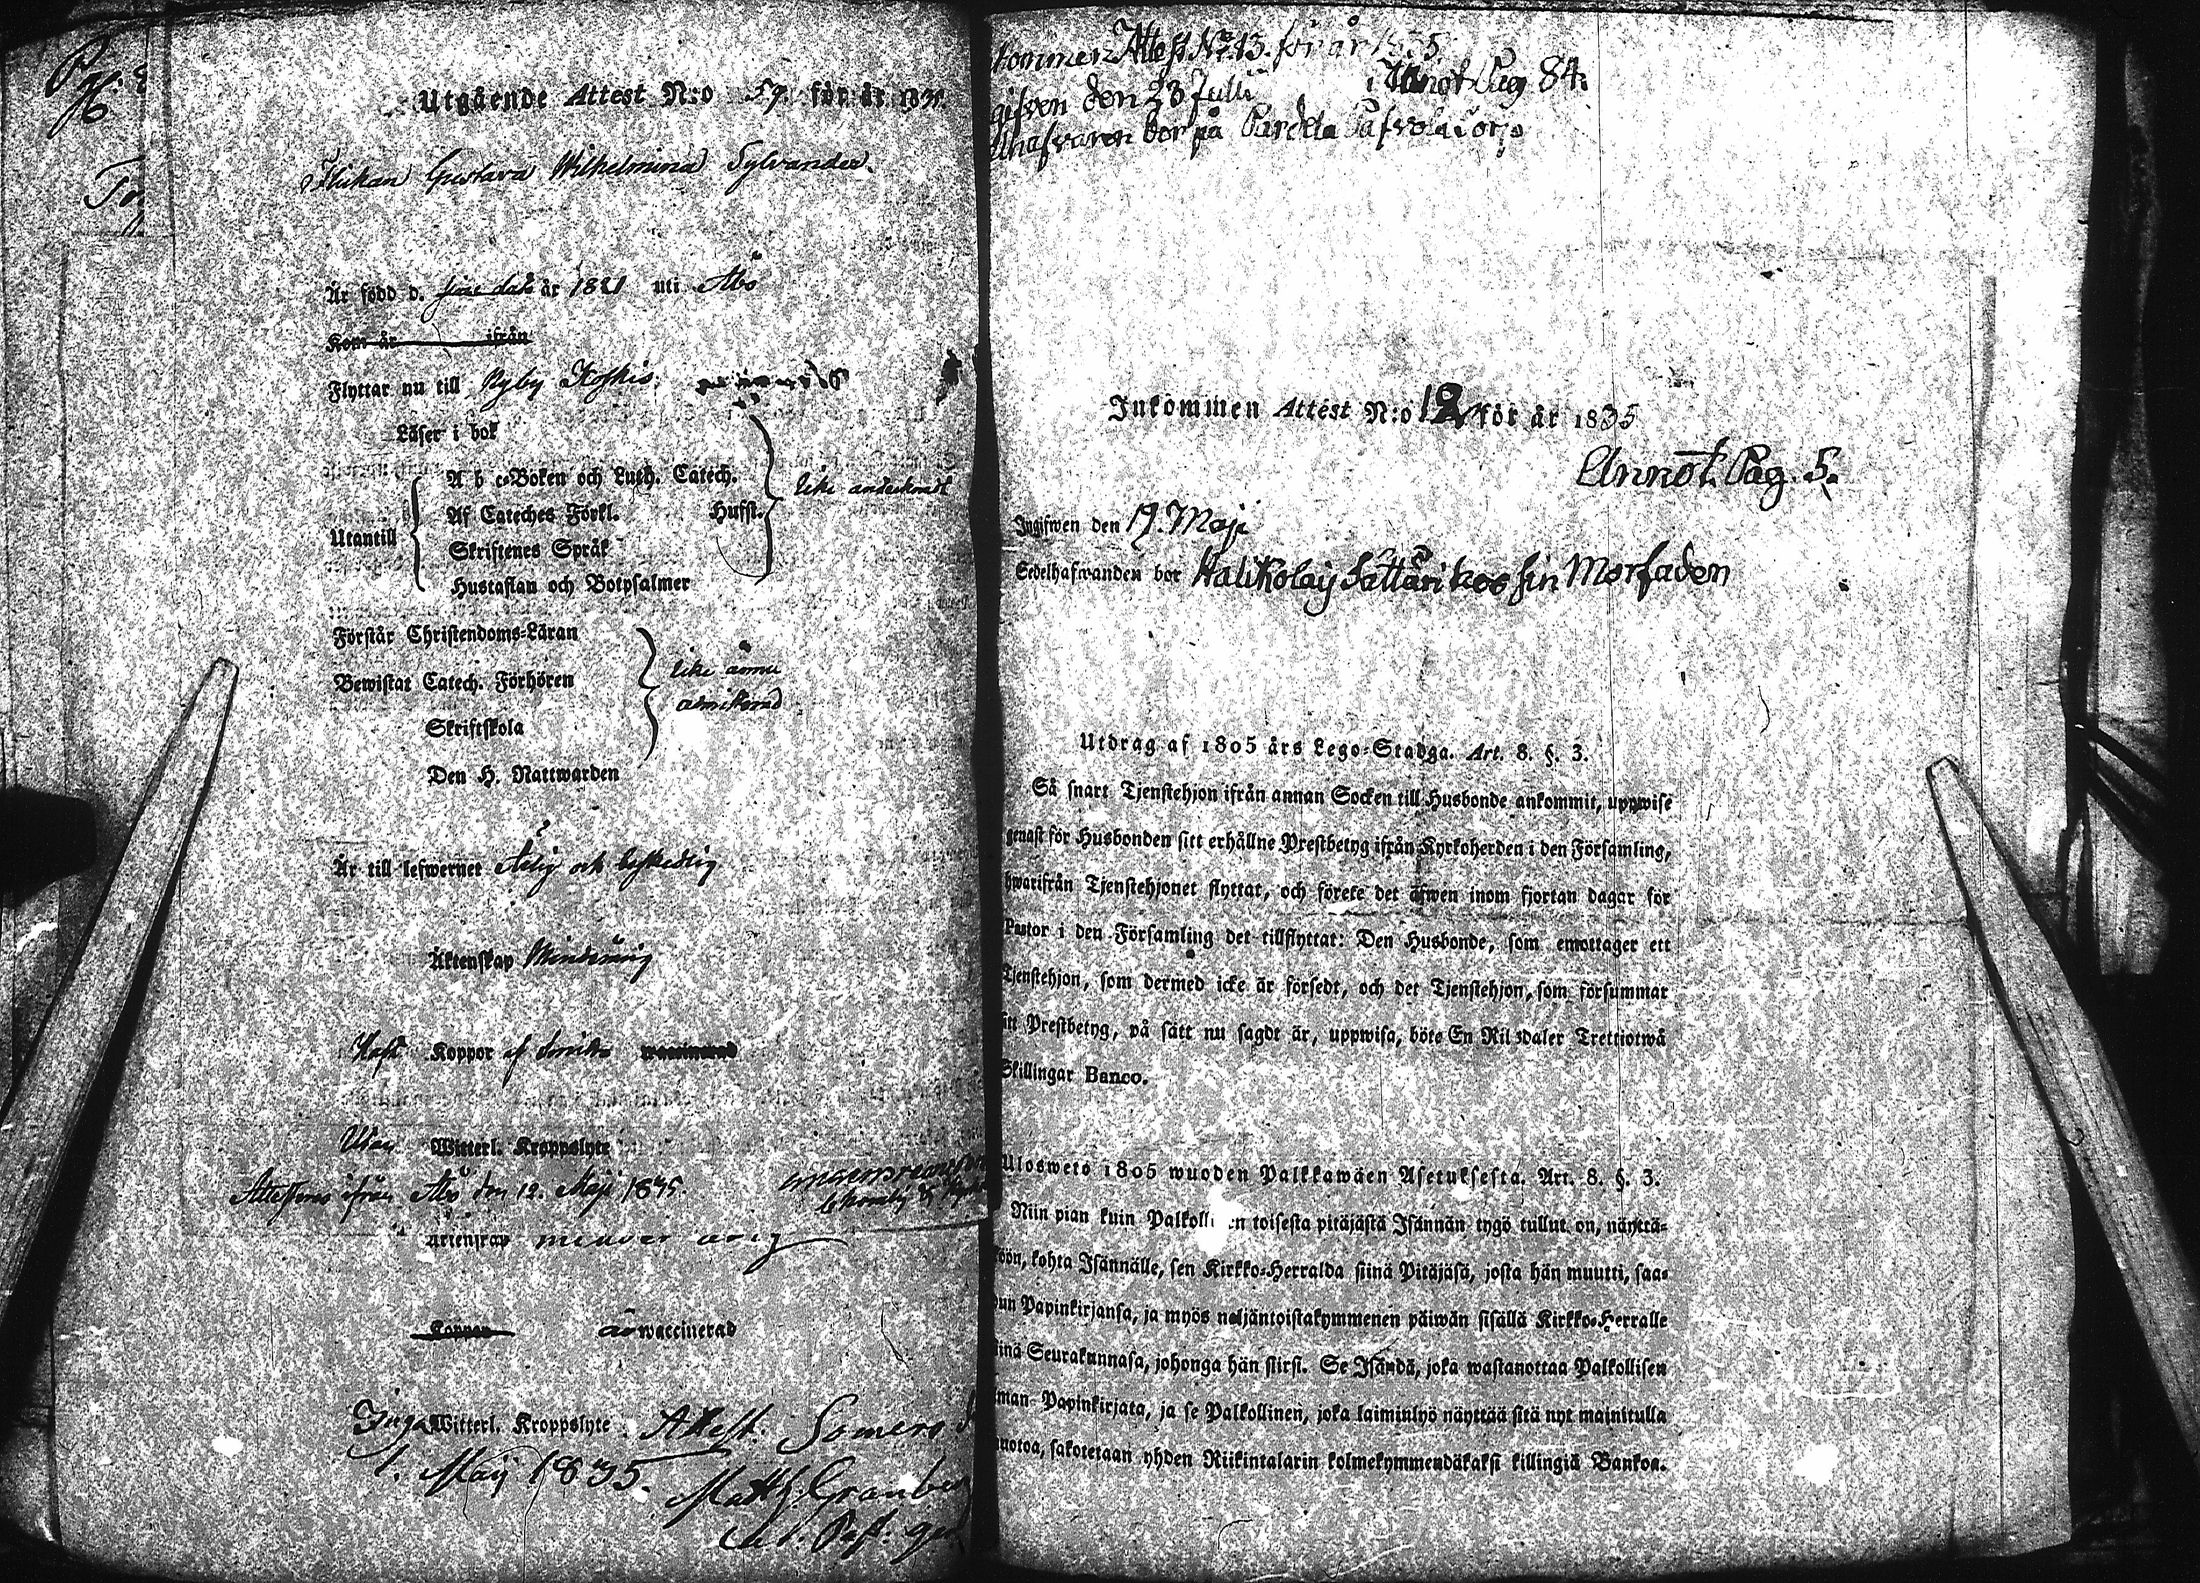 Utgående Attest N:o 59. för år 1835.
Flickan Gustava Wilhelmina Sylvander.
Är född d. år 1821 uti Åbo
Kom år ifrån
Flyttar nu till Nyby Koskis.
Läser i bok
A b c-Boken och Luth. Catech.
Af Cateches Förkl. Husst.
Utantill
Skriftenes Språk
Hustaflan och Botpsalmer
Förstår Christendoms-Läran
Bewistat Catech. Förhören
Skriftskola
Den H. Nattwarden
icke ännu
Är till lefwernet ärlig och beskedlig
Äktenskap Minderårig
Haft Koppor af waccinerad
Utan Witterl. Kroppslyte
Attesteras ifrån Åbo den 12. Maji 1835.
Äktenskap minder årig
Koppor är waccinerad
Inga Witterl. Kroppslyte Attest. Somero
1. Maij 1835.
Matth. Granber
Past.
kommen Attest No. 13. för år 1835.
i Annot. Pag 84.
gifven den 23 Julii
lhafvaren bor på
Inkommen Attest N:o 12 för år 1835
Annot. Pag. 5.
Ingifwen den 19. Maji
Sedelhafwanden bor Halikolaij Sattári hos sin Morfaden
Utdrag af 1805 års Lego-Stadga. Art. 8. §. 3.
Så snart Tjenstehjon ifrån annan Socken till Husbonde ankommit, uppwise
genast för Husbonden sitt erhållne Prestbetyg ifrån Kyrkoherden i den Församling,
hwarifrån Tjenstehjonet flyttat, och förete det äfwen inom fjortan dagar för
Pastor i den Församling det tillflyttat: Den Husbonde, som emottager ett
Tjenstehjon, som dermed icke är försedt, och det Tjenstehjon, som försummar
sitt Prestbetyg, på sätt nu sagdt är, uppwisa, böte En Riksdaler Trettiotwå
Skillingar Banco.
Uloswetö 1805 wuoden Palkkawäen Asetuksesta. Art. 8. §. 3.
Niin pian kuin Palkolli en toisesta pitäjästä Isännän tygö tullut on, näyttä-
köön, kohta Isännälle, sen Kirkko-Herralda siinä Pitäjäsä, josta hän muutti, saa-
dun Papinkirjansa, ja myös neljäntoistakymmenen päiwän sisällä Kirkko-Herralle
siinä Seurakunnasa, johonga hän siirsi. Se Isändä, joka wastanottaa Palkollisen
ilman Papinkirjata, ja se Palkollinen, joka laiminlyö näyttää sitä nyt mainitulla
muotoa, sakotetaan yhden Riikintalarin kolmekymmendäkaksi killingiä Bankoa.